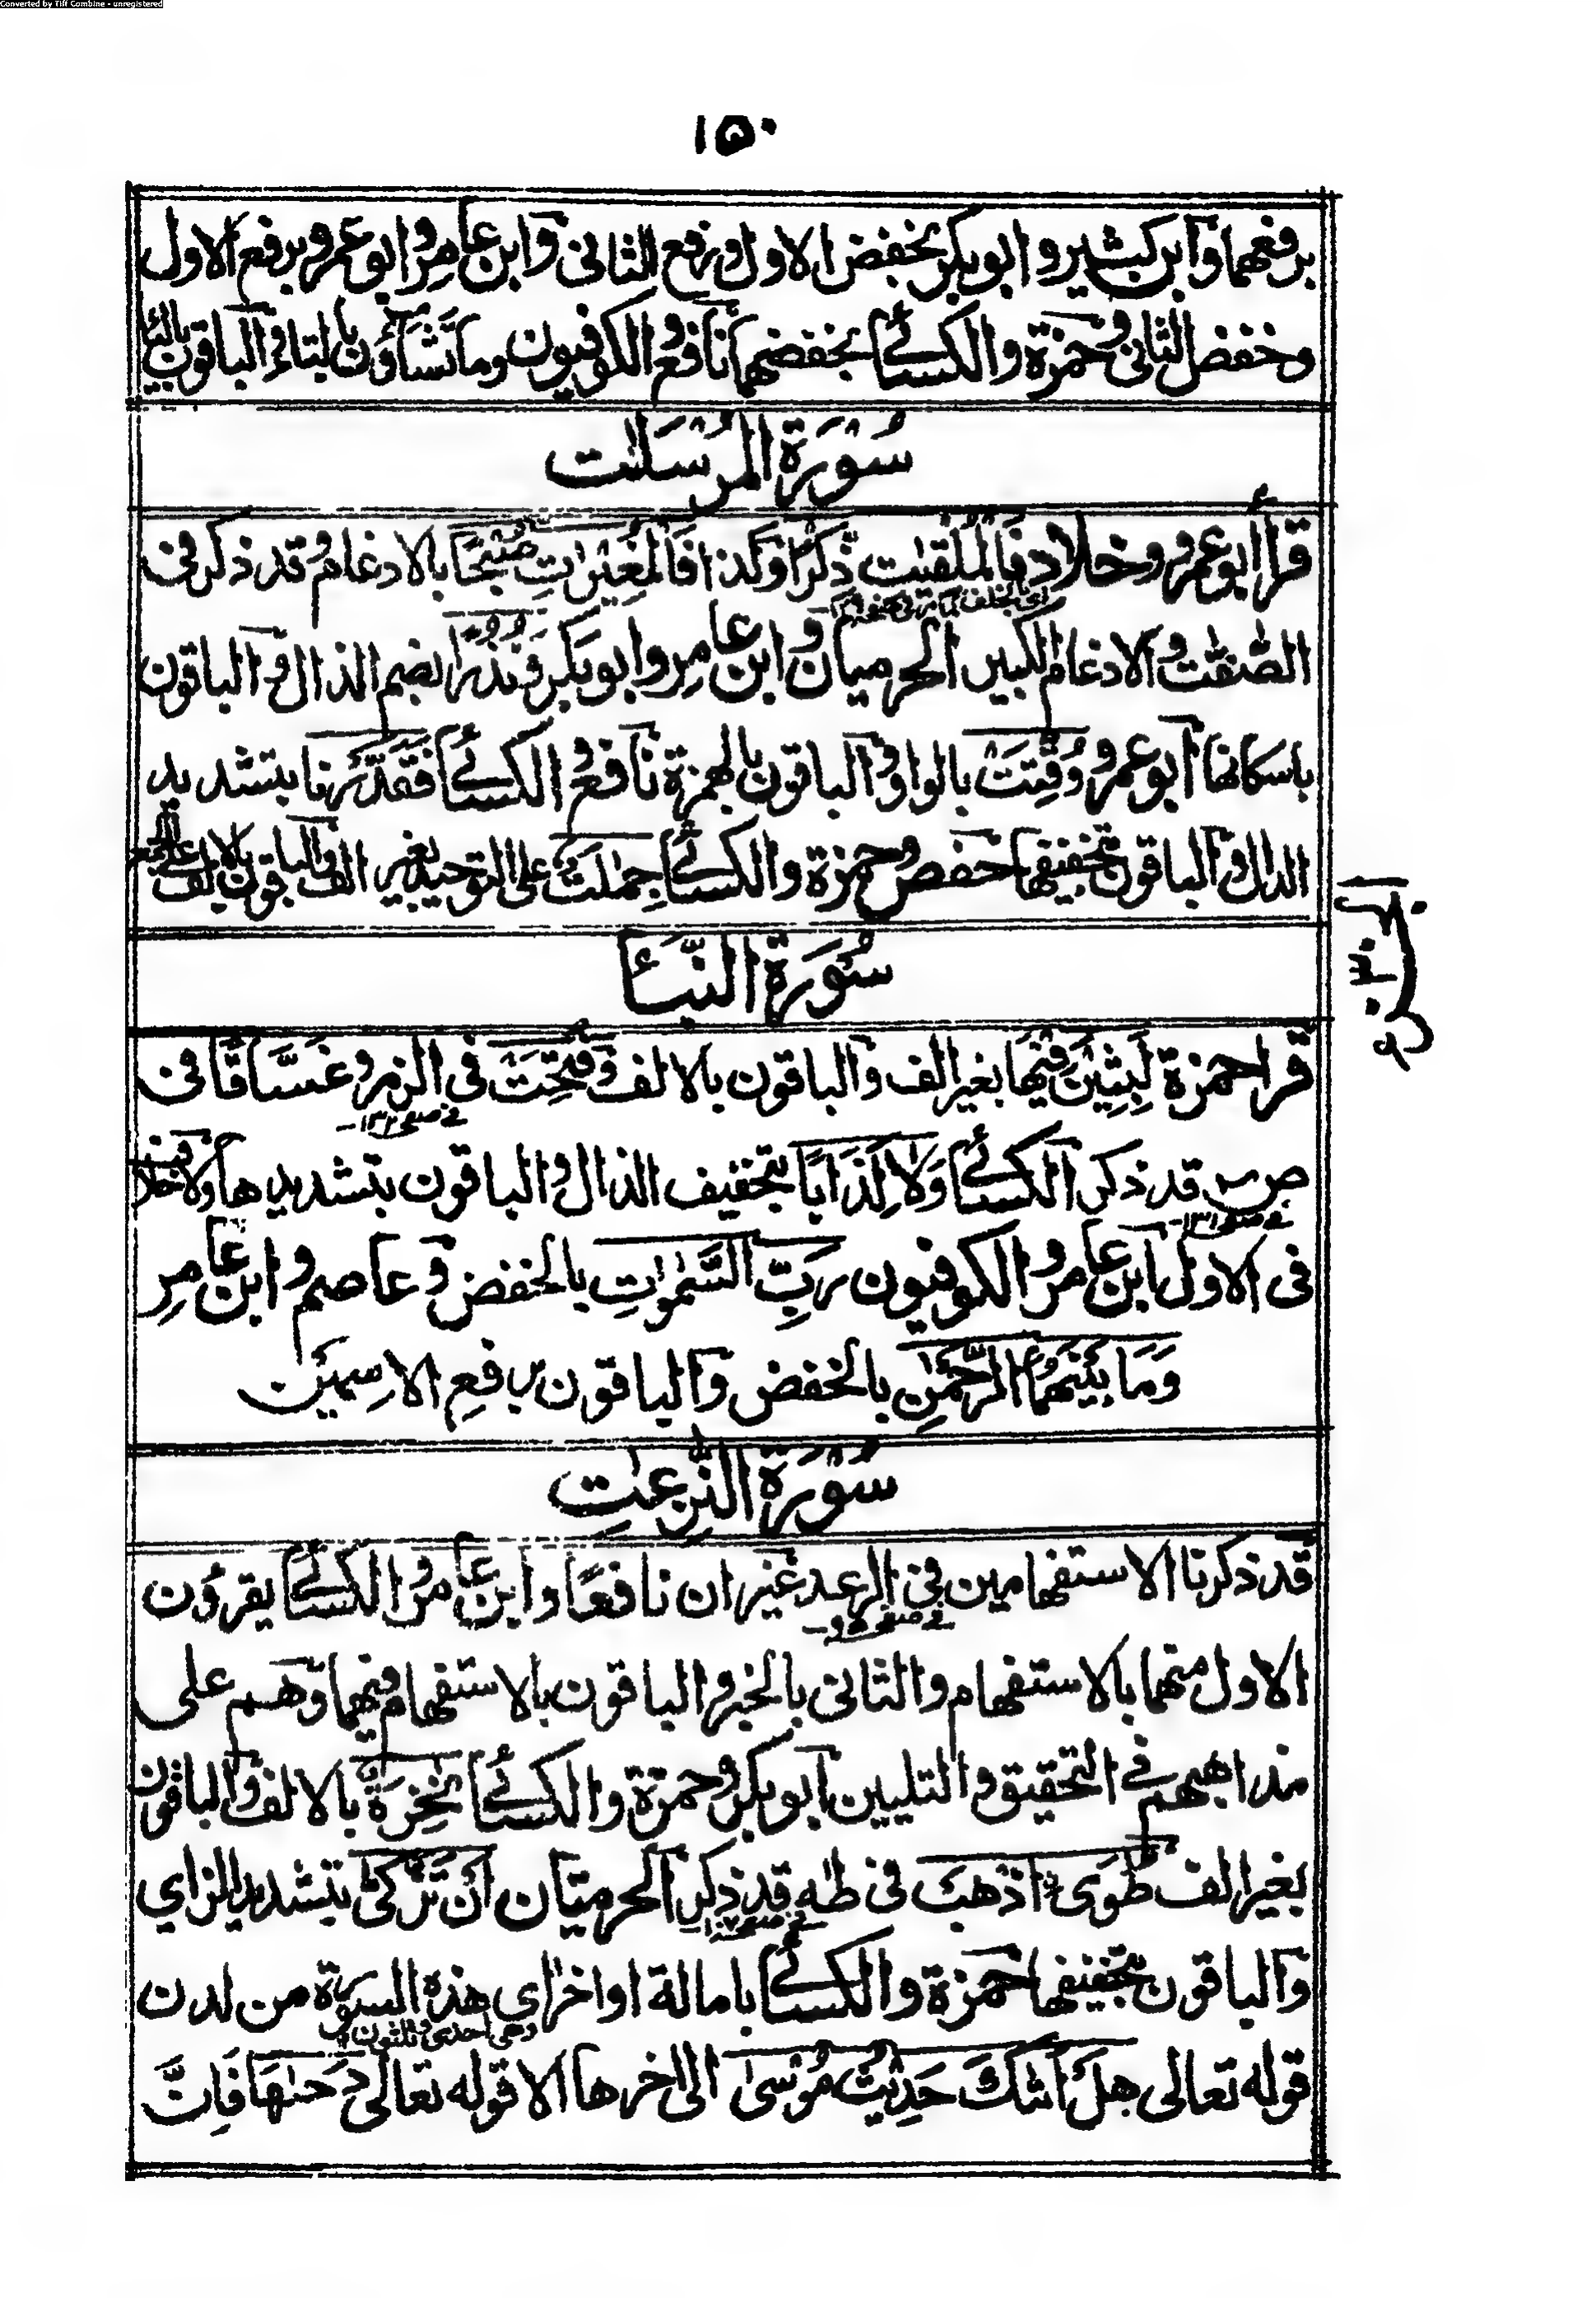 Converted by Tiff Combine - unregistered
١٥٠
برفعهما وابن كثير وابوبكر بخفض الاول ورفع الثانى وابن عامر وابو عمرو برفع الاول
وخفض الثانى وحمزة والكسائى بخفضهما نافع والكوفيون وما تشاؤن بالتاء والباقون بالياء
سُوْرَةُ المُرْسَلٰت
قرأ ابو عمرو وخلاد فَالْمُلْقِيٰتِ ذِّكْرًا وكذا فَالْمُغِيْرٰاتِ صُبْحًا بالادغام وقد ذكر فى
الصّٰفّٰت والادغام الكبير الحرميان وابن عامر وابو بكر اَوْ نُذُرًا بضم الذال والباقون
باسكانها ابو عمرو وُقِّتَتْ بالواو والباقون بالهمزة نافع والكسائى فَقَدَّرْنا بتشديد
الدال والباقون بتخفيفها حفص وحمزة والكسائى جِمٰلَتٌ على التوحيد بغير الف والباقون بالالف على الجمع
سُوْرَةُ النَّبَأ
قرا حمزة لَبِثِيْنَ فِيْهَا بغير الف والباقون بالالف وَفُتِحَتْ فى الزمر وغَسَّاقًا فى
فے صفحہ ١٣٢
ص قد ذكر الكسائى وَلَا كِذَابًا بتخفيف الذال والباقون بتشديدها ولا خلاف
فے صفحہ ١٣١
فى الاول ابن عامر والكوفيون رَبِّ السَّمٰوٰتِ بالخفض وعاصم وابن عامر
وَمَا بَيْنَهُمَا الرَّحْمٰنِ بالخفض والباقون برفع الاسمين
سُوْرَةُ النّٰزِعٰتِ
قد ذكرنا الاستفهامين فى الرعد غير ان نافعًا وابن عامر والكسائى يقرؤن
الاول منهما بالاستفهام والثانى بالخبر والباقون بالاستفهام فيهما وهم على
مذاهبهم فے التحقيق والتليين ابو بكر وحمزة والكسائى نٰخِرَةً بالالف والباقون
بغير الف طُوًى اذْهَبْ فى طٰهٰ قد ذكر الحرميّان اَنْ تَزَّكّٰى بتشديد الزاي
والباقون بتخفيفها حمزة والكسائى بامالة اواخر اى هذه السورة من لدن
وهى احدى وثلثون
قوله تعالى هَلْ اَتٰىكَ حَدِيْثُ مُوْسٰى الى اخرها الا قوله تعالى دَحٰىهَا فَاِنَّ